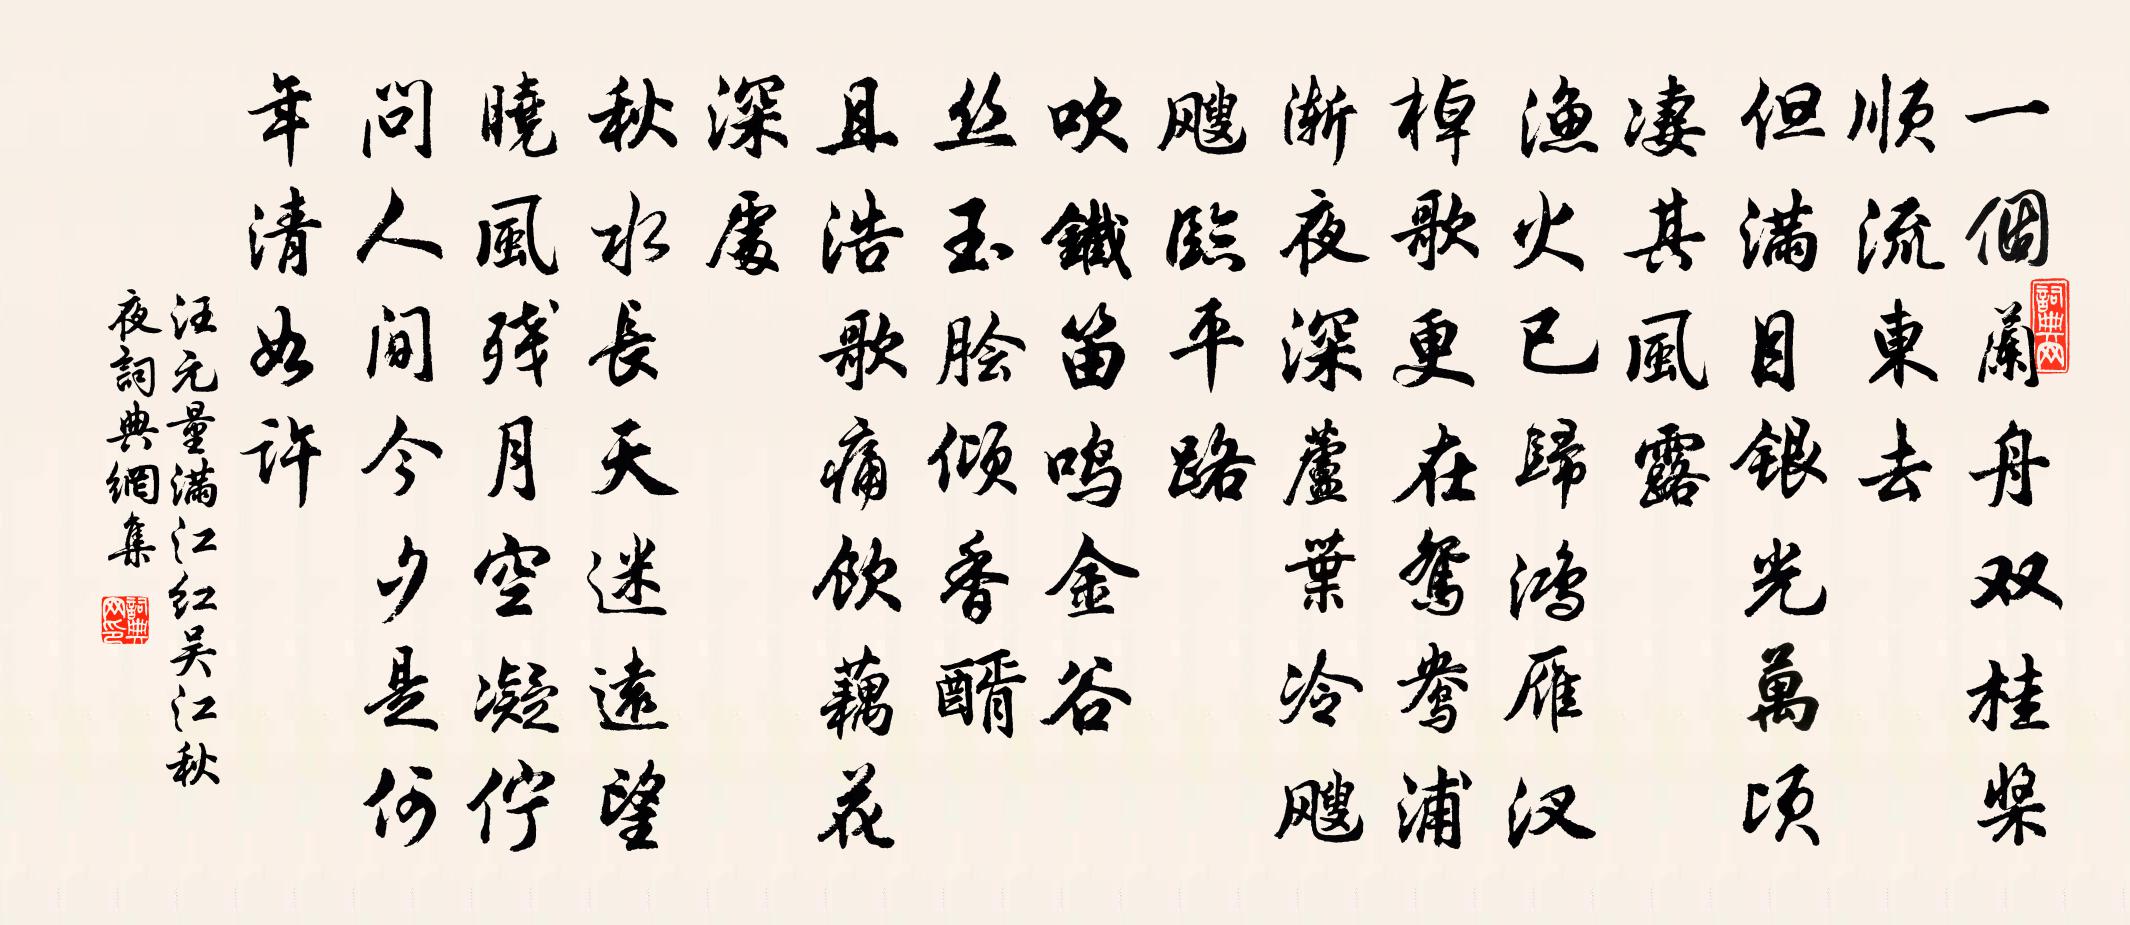 一個蘭舟双桂桨
順流東去
但满目银光萬頃
凄其風露
渔火已歸鸿雁汊
棹歌更在鸳鸯浦
渐夜深蘆葉冷飕
飕臨平路
吹鐵笛鸣金谷
丝玉脍倾香醑
且浩歌痛饮藕花
深處
秋水長天迷遠望
曉風残月空凝佇
問人间今夕是何
年清如許
汪元量满江红吴江秋
夜詞典網集
詞典网
詞典网印